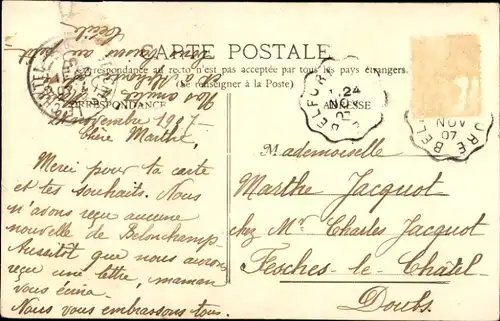 CARTE POSTALE
Correspondance au recto n'est pas acceptée par tous les pays étrangers.
(Se renseigner à la Poste)
CORRESPONDANCE
ADRESSE
novembre 1907
Chère Marthe,
Merci pour ta carte
et tes souhaits. Nous
n'avons reçu aucune
nouvelle de Belonchamp
Aussitôt que nous aurons
reçu une lettre, maman
vous écrira.
Nous vous embrassons tous.
Cécile
Mademoiselle
Marthe Jacquot
chez Mr Charles Jacquot
Fesches-le-Châtel
Doubs.
BELFORT
24
NOV
07
NOV
07